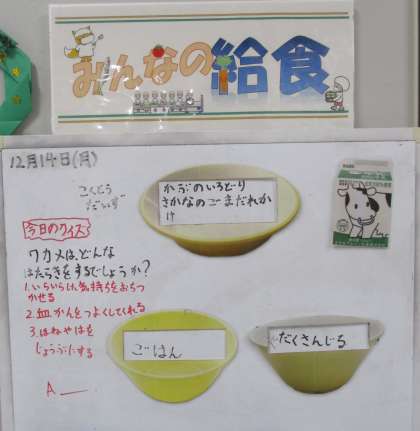 みんなの給食
12月14日(月)
こくとう
だいず
かぶのいろどり
さかなのごまだれか
け
今日のクイズ
ワカメは、どんな
はたらきをするでしょうか?
1.いらいらした気持ちをおちつ
かせる
2.血かんをつよくしてくれる
3.ほねやはを
じょうぶにする
A
ごはん
だくさんじる